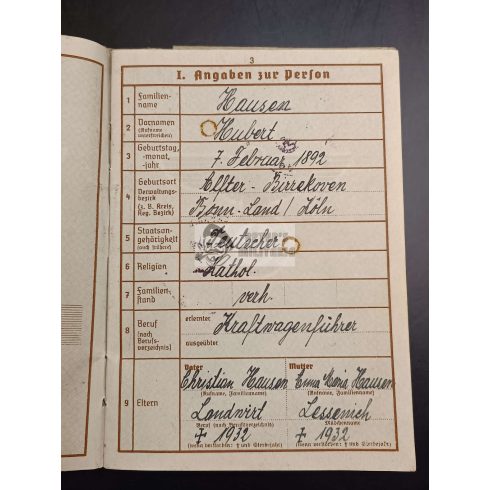 3
I. Angaben zur Person
1 Familien-
name
Hausen
2 Vornamen
(Rufname
unterstreichen)
Hubert
3 Geburtstag,
-monat,
-jahr
7. Februar 1892
4 Geburtsort
Verwaltungs-
bezirk
(z. B. Kreis,
Reg. Bezirk)
Alfter - Birrekoven
Bonn-Land / Köln
5 Staatsan-
gehörigkeit
(auch frühere)
Deutscher
6 Religion
Kathol.
7 Familien-
stand
verh.
8 Beruf
(nach
Berufs-
verzeichnis)
erlernter
Kraftwagenführer
ausgeübter
9 Eltern
Vater
Christian Hausen
(Rufname, Familienname)
Landwirt
Beruf (nach Berufsverzeichnis)
† 1932
(wenn verstorben: † und Sterbejahr)
Mutter
Anna Maria Hausen
(Rufname, Familienname)
Lessenich
Mädchenname
† 1932
(wenn verstorben: † und Sterbejahr)